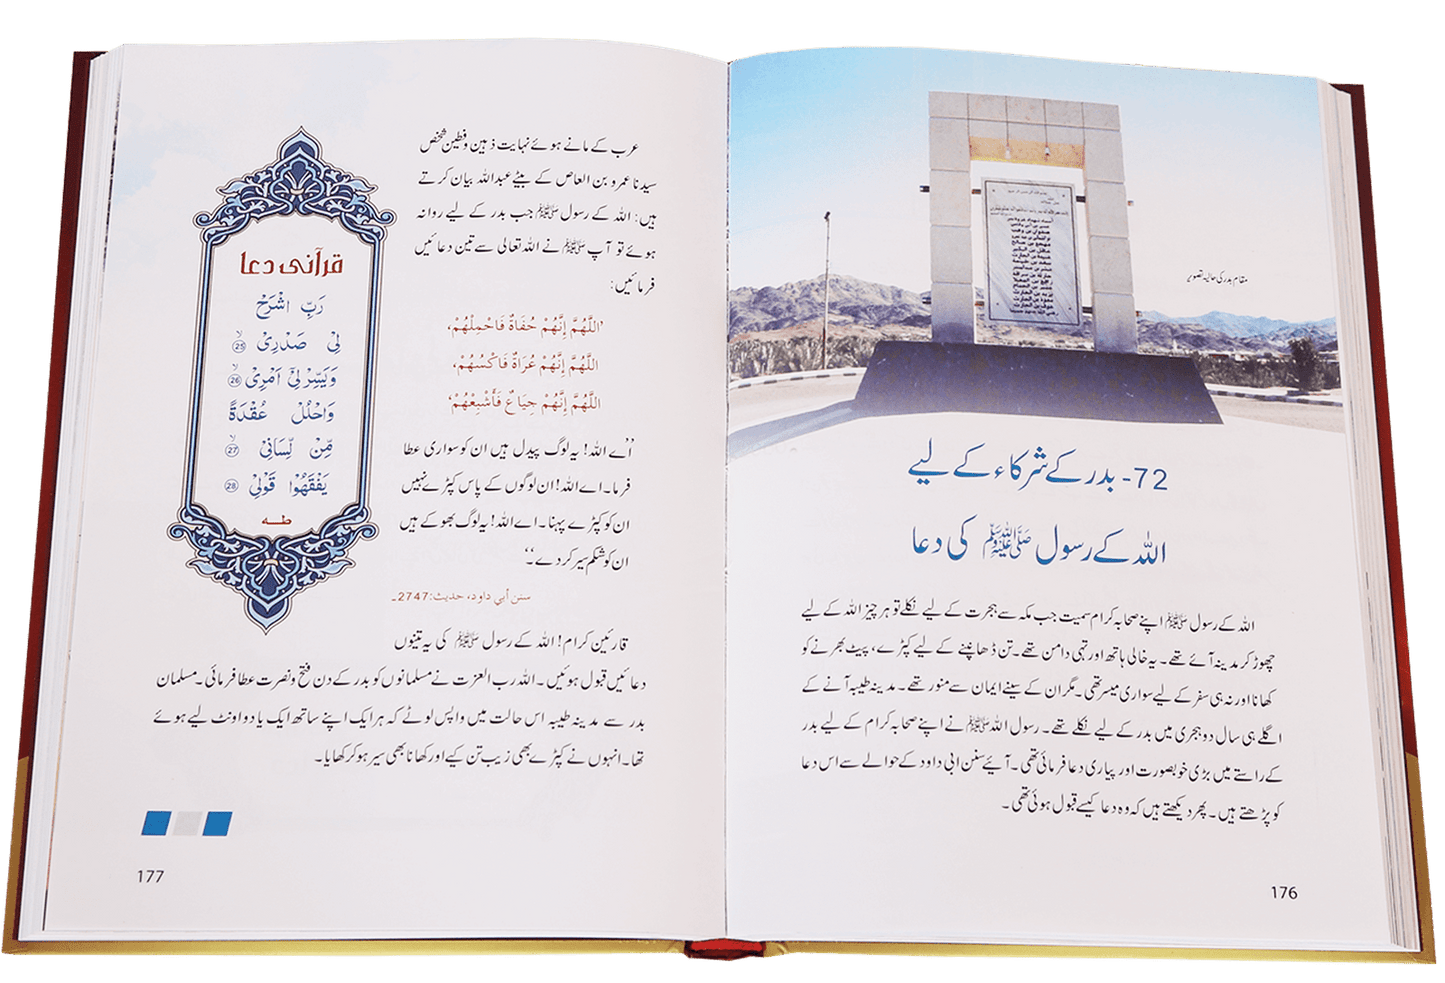 مقام بدر کی حالیہ تصویر
72- بدر کے شرکاء کے لیے
اللہ کے رسول ﷺ کی دعا
اللہ کے رسول ﷺ اپنے صحابہ کرام سمیت جب مکہ سے ہجرت کے لیے نکلے تو ہر چیز اللہ کے لیے
چھوڑ کر مدینہ آئے تھے۔ یہ خالی ہاتھ اور تہی دامن تھے۔ تن ڈھانپنے کے لیے کپڑے، پیٹ بھرنے کو
کھانا اور نہ ہی سفر کے لیے سواری میسر تھی۔ مگر ان کے سینے ایمان سے منور تھے۔ مدینہ طیبہ آنے کے
اگلے ہی سال دو ہجری میں بدر کے لیے نکلے تھے۔ رسول اللہ ﷺ نے اپنے صحابہ کرام کے لیے بدر
کے راستے میں بڑی خوبصورت اور پیاری دعا فرمائی تھی۔ آیئے سنن ابی داود کے حوالے سے اس دعا
کو پڑھتے ہیں۔ پھر دیکھتے ہیں کہ وہ دعا کیسے قبول ہوئی تھی۔
176
عرب کے مانے ہوئے نہایت ذہین و فطین شخص
سیدنا عمرو بن العاص کے بیٹے عبداللہ بیان کرتے
ہیں: اللہ کے رسول ﷺ جب بدر کے لیے روانہ
ہوئے تو آپ ﷺ نے اللہ تعالی سے تین دعائیں
فرمائیں:
'اللَّهُمَّ إِنَّهُمْ حُفَاةٌ فَاحْمِلْهُمْ،
اللَّهُمَّ إِنَّهُمْ عُرَاةٌ فَاكْسُهُمْ،
اللَّهُمَّ إِنَّهُمْ جِيَاعٌ فَأَشْبِعْهُمْ'
''اے اللہ! یہ لوگ پیدل ہیں ان کو سواری عطا
فرما۔ اے اللہ! ان لوگوں کے پاس کپڑے نہیں
ان کو کپڑے پہنا۔ اے اللہ! یہ لوگ بھوکے ہیں
ان کو شکم سیر کر دے۔''
سنن أبي داود، حديث:2747۔
قارئین کرام! اللہ کے رسول ﷺ کی یہ تینوں
دعائیں قبول ہوئیں۔ اللہ رب العزت نے مسلمانوں کو بدر کے دن فتح و نصرت عطا فرمائی۔ مسلمان
بدر سے مدینہ طیبہ اس حالت میں واپس لوٹے کہ ہر ایک اپنے ساتھ ایک یا دو اونٹ لیے ہوئے
تھا۔ انہوں نے کپڑے بھی زیب تن کیے اور کھانا بھی سیر ہو کر کھایا۔
قرآنی دعا
رَبِّ اشْرَحْ
لِیْ صَدْرِیْ 25
وَیَسِّرْ لِیْٓ اَمْرِیْ 26
وَاحْلُلْ عُقْدَةً
مِّنْ لِّسَانِیْ 27
یَفْقَهُوْا قَوْلِیْ 28
طٰہٰ
177